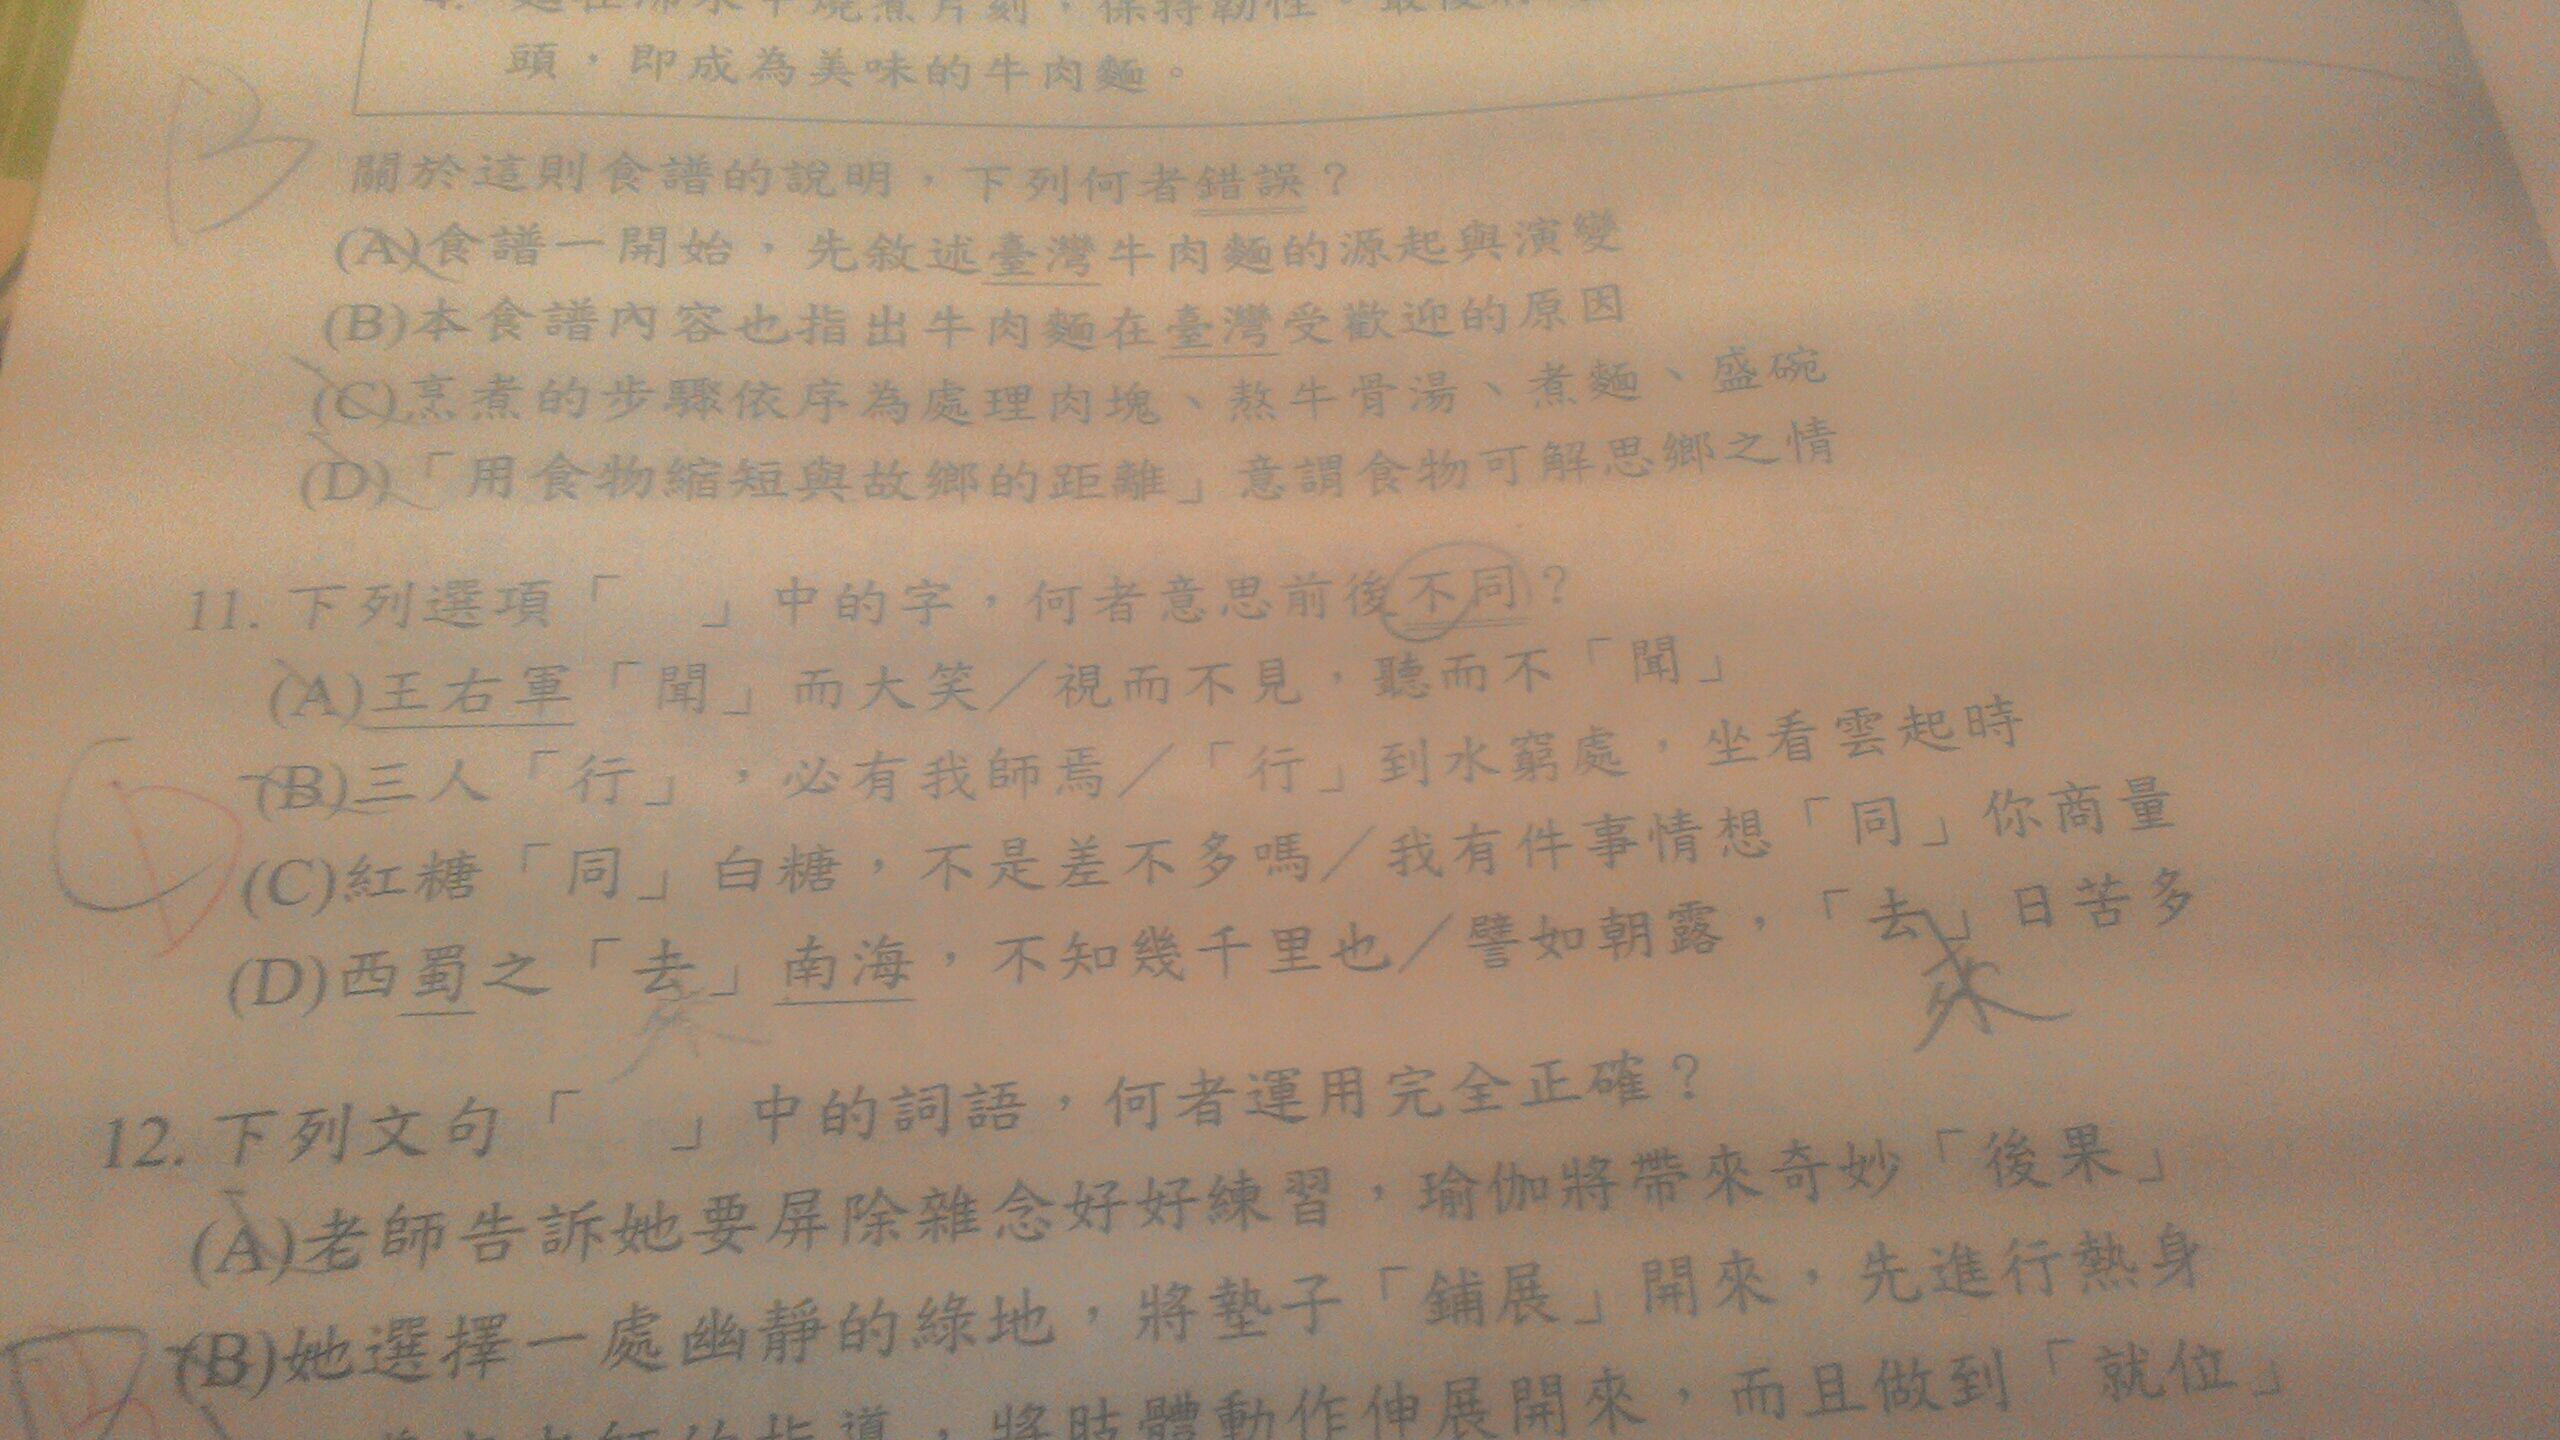 4. 麵在沸水中燒煮片刻，保持韌性。最後
頭，即成為美味的牛肉麵。
B
關於這則食譜的說明，下列何者錯誤？
(A)食譜一開始，先敘述臺灣牛肉麵的源起與演變
(B)本食譜內容也指出牛肉麵在臺灣受歡迎的原因
(C)烹煮的步驟依序為處理肉塊、熬牛骨湯、煮麵、盛碗
(D)「用食物縮短與故鄉的距離」意謂食物可解思鄉之情
11. 下列選項「　」中的字，何者意思前後不同？
(A)王右軍「聞」而大笑／視而不見，聽而不「聞」
(B)三人「行」，必有我師焉／「行」到水窮處，坐看雲起時
C D
(C)紅糖「同」白糖，不是差不多嗎／我有件事情想「同」你商量
(D)西蜀之「去」南海，不知幾千里也／譬如朝露，「去」日苦多
12. 下列文句「　」中的詞語，何者運用完全正確？
(A)老師告訴她要屏除雜念好好練習，瑜伽將帶來奇妙「後果」
(B)她選擇一處幽靜的綠地，將墊子「鋪展」開來，先進行熱身
的指導，將肢體動作伸展開來，而且做到「就位」